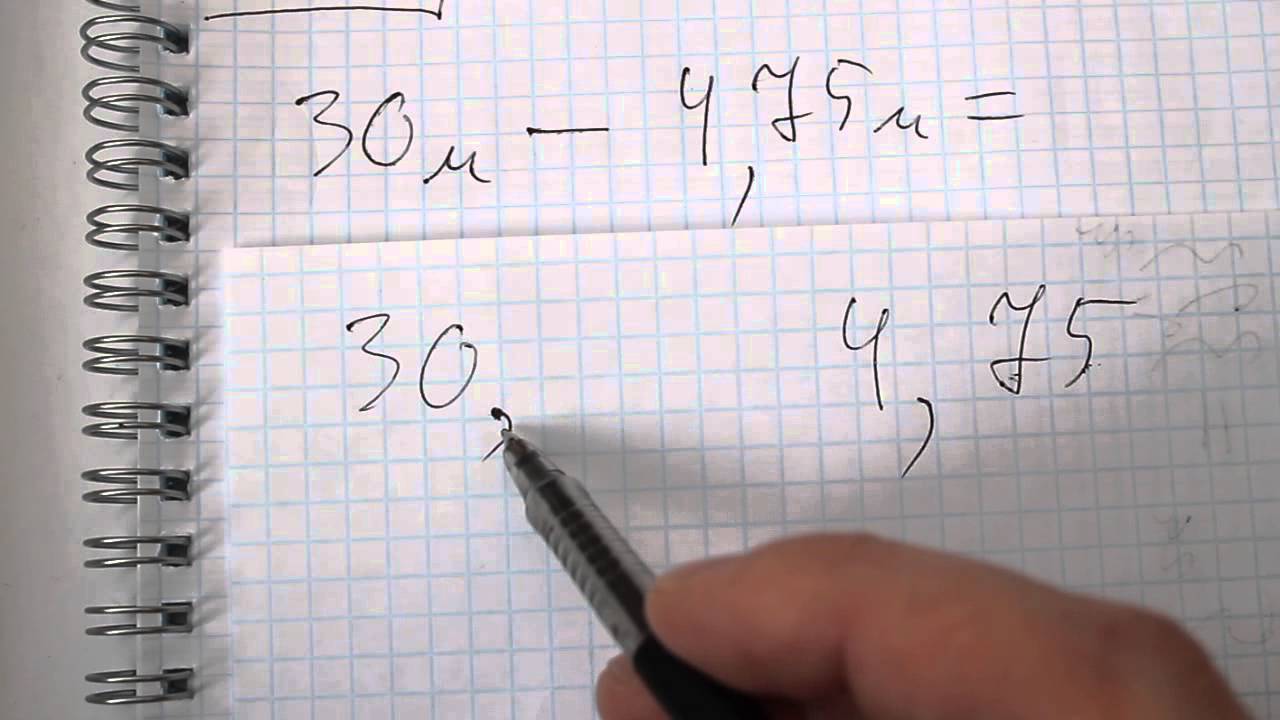 30м – 4,75м =
30, 4,75